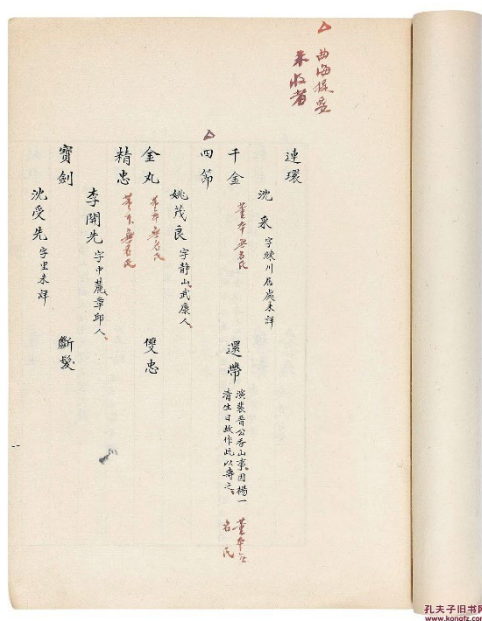 △曲海提要
未收者
連環
沈采 字練川居處未詳
千金 董本無名氏 還帶 演裴晉公香山事因楊一
清生日故作此以壽之、 董本無
名氏
△四節
姚茂良 字靜山武康人、
金丸 董本無名氏 雙忠
精忠 董本無名氏
李開先 字中麓章邱人、
寶劍 斷髮
沈受先 字里未詳
孔夫子旧书网
www.kongfz.com